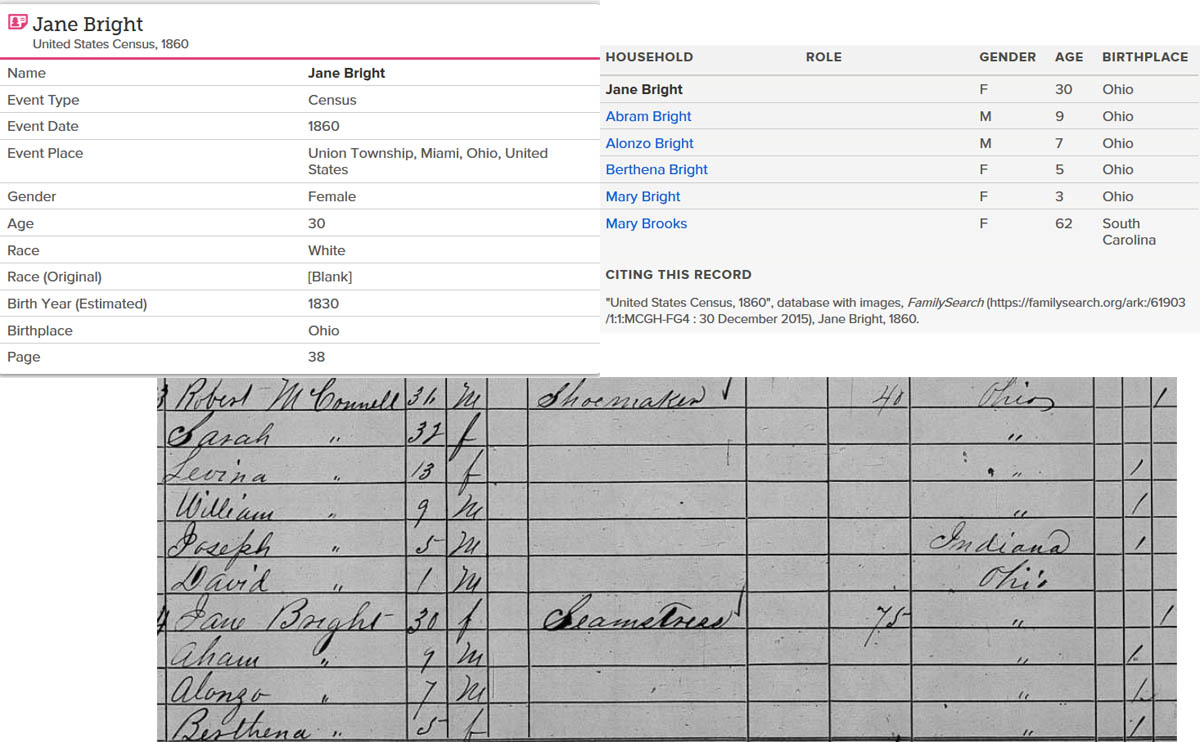 Jane Bright
United States Census, 1860
Name Jane Bright
Event Type Census
Event Date 1860
Event Place Union Township, Miami, Ohio, United
States
Gender Female
Age 30
Race White
Race (Original) [Blank]
Birth Year (Estimated) 1830
Birthplace Ohio
Page 38
HOUSEHOLD ROLE GENDER AGE BIRTHPLACE
Jane Bright F 30 Ohio
Abram Bright M 9 Ohio
Alonzo Bright M 7 Ohio
Berthena Bright F 5 Ohio
Mary Bright F 3 Ohio
Mary Brooks F 62 South
Carolina
CITING THIS RECORD
"United States Census, 1860", database with images, FamilySearch (https://familysearch.org/ark:/61903
/1:1:MCGH-FG4 : 30 December 2015), Jane Bright, 1860.
Robert McConnell M Shoemaker 40 Ohio 1
Sarah " 32 f "
Levina " 13 f " 1
William " 9 M " 1
Joseph " 5 M Indiana 1
David " 1 M Ohio
Jane Bright 30 f Seamstress 75 " 1
" 9 M " 1
Alonzo " 7 M " 1
Berthena " 5 f " 1